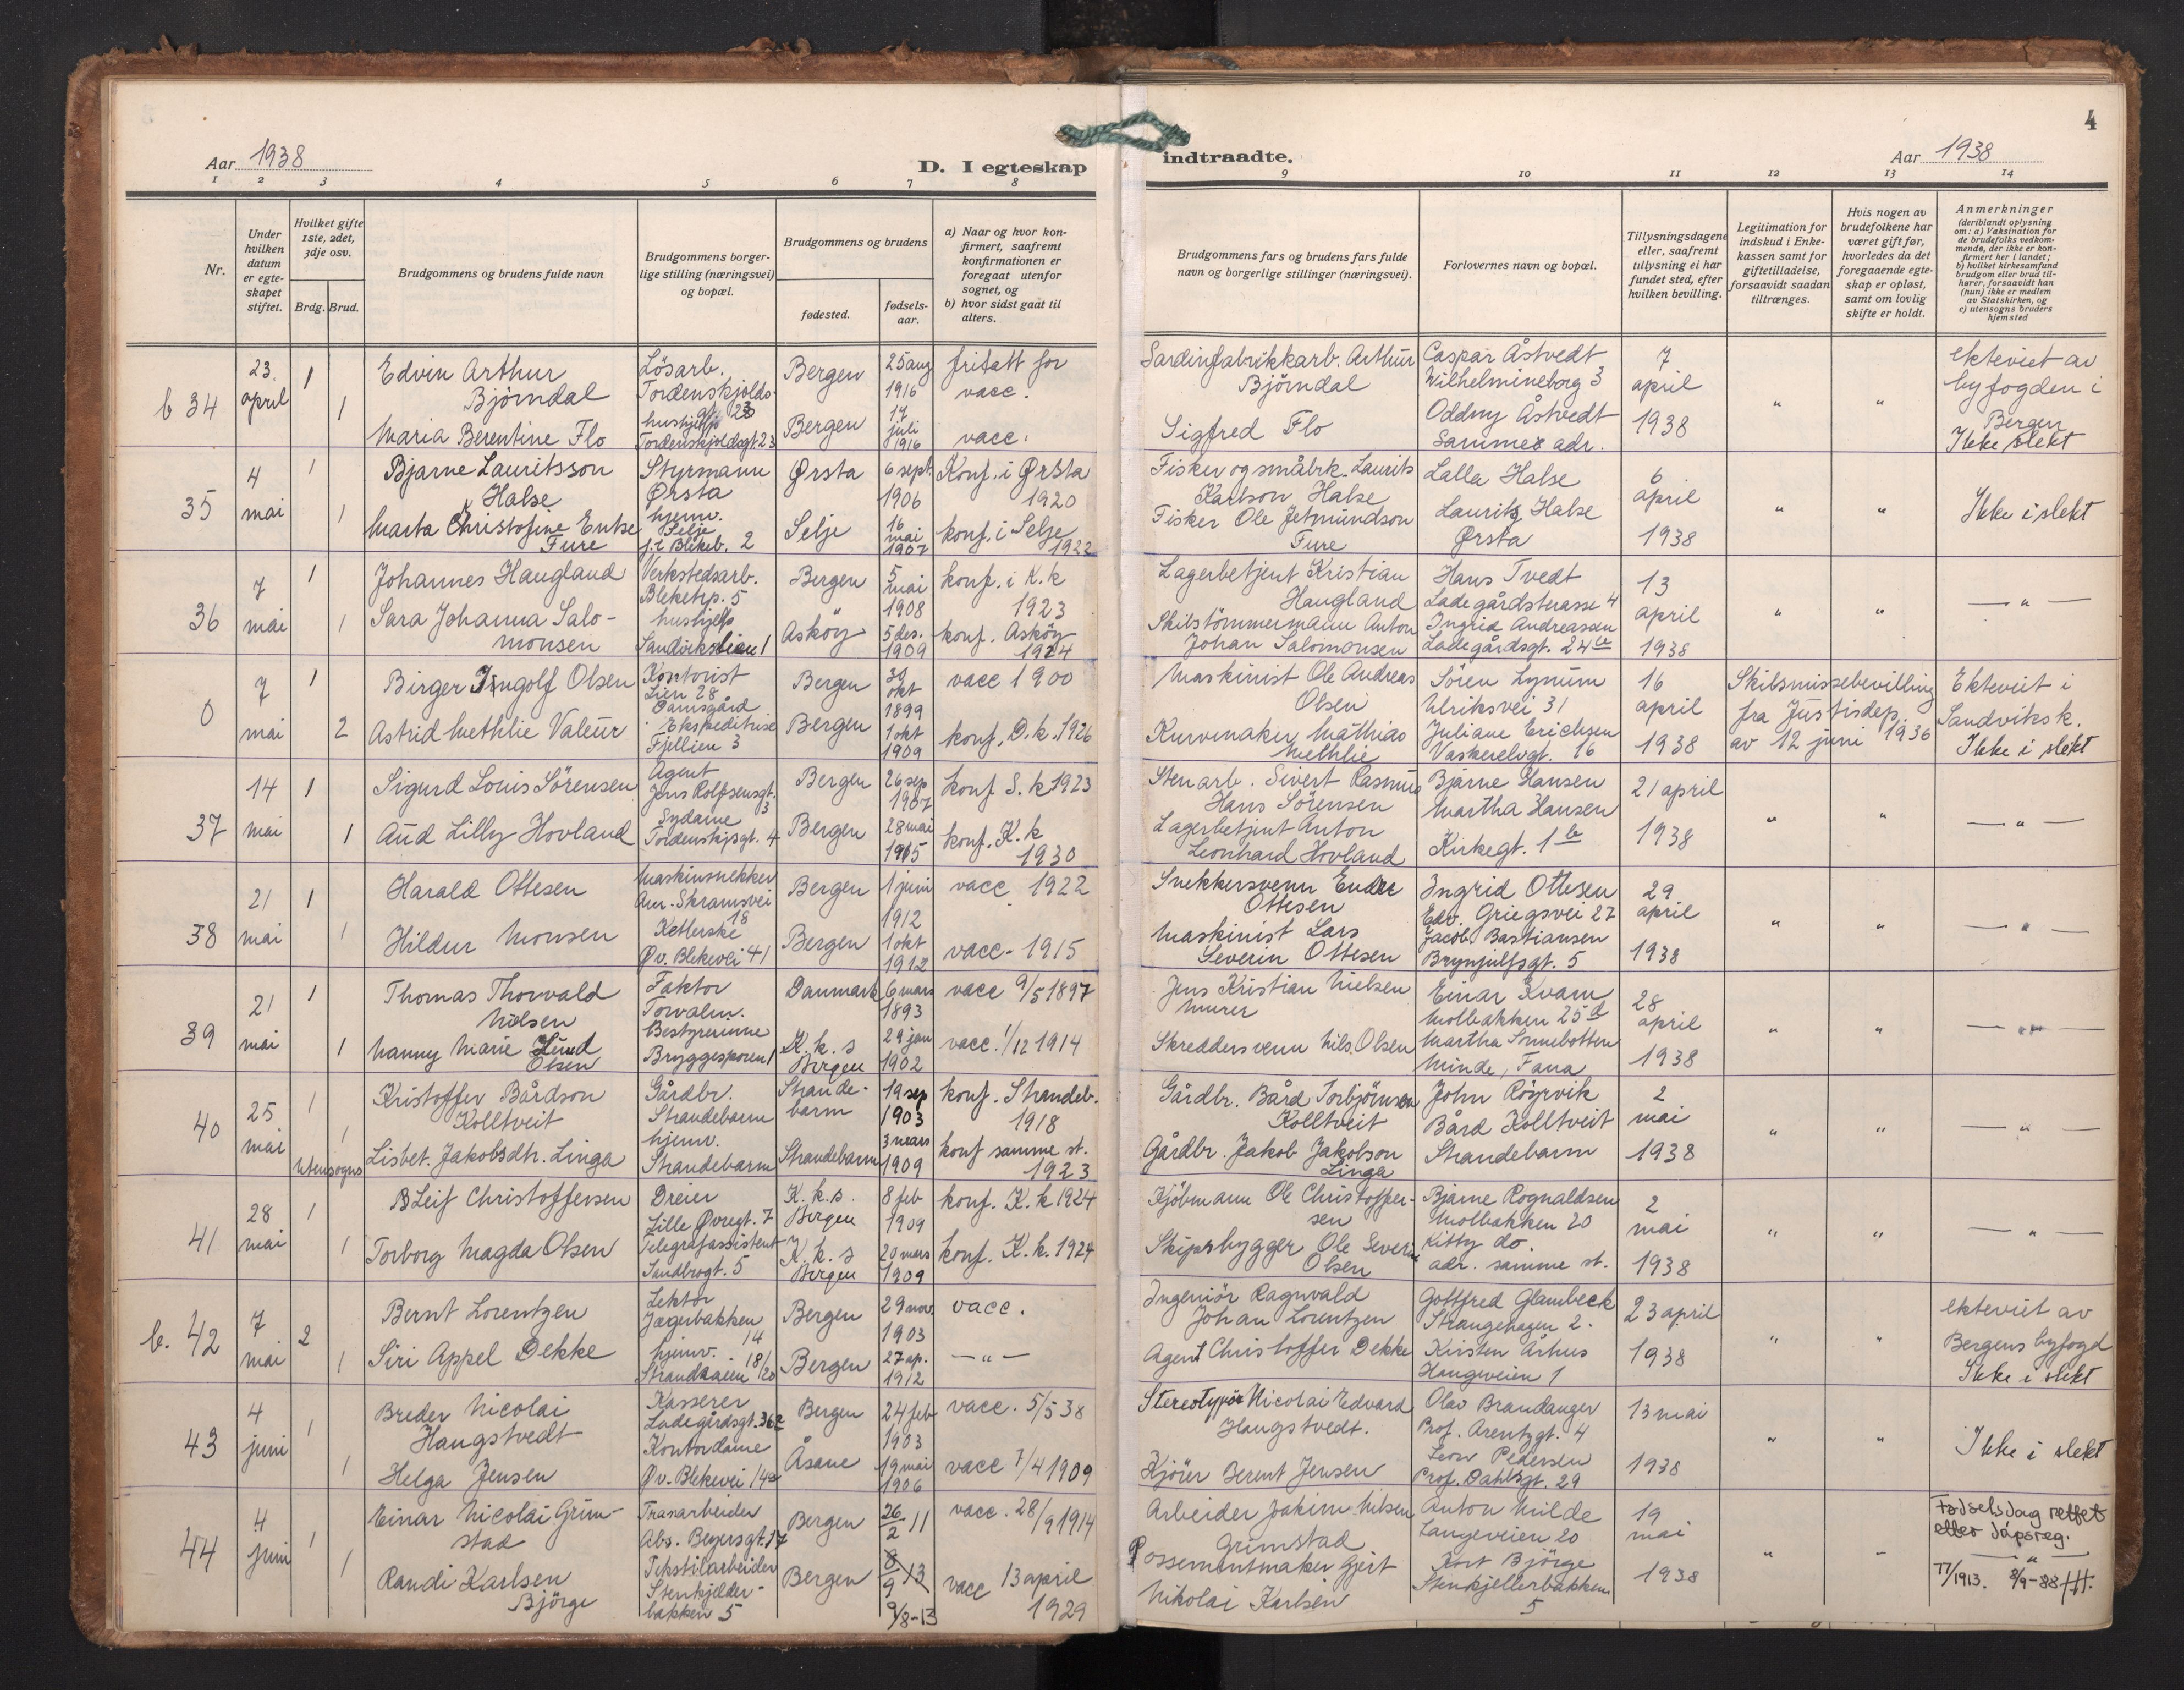 4
Aar 1938
D. I egteskap
indtraadte.
Aar 1938
1 2 3 4 5 6 7 8
9 10 11 12 13 14
Nr.
Under hvilken datum er egteskapet stiftet.
Hvilket gifte 1ste, 2det, 3dje osv.
Brdg. Brud.
Brudgommens og brudens fulde navn
Brudgommens borgerlige stilling (næringsvei) og bopæl.
Brudgommens og brudens
fødested.
fødselsaar.
a) Naar og hvor konfirmert, saafremt konfirmationen er foregaat utenfor sognet, og
b) hvor sidst gaat til alters.
Brudgommens fars og brudens fars fulde navn og borgerlige stillinger (næringsvei).
Forlovernes navn og bopæl.
Tillysningsdagene eller, saafremt tillysning ei har fundet sted, efter hvilken bevilling.
Legitimation for indskud i Enkekassen samt for giftetilladelse, forsaavidt saadan tiltrænges.
Hvis nogen av brudefolkene har været gift før, hvorledes da det foregaaende egteskap er opløst, samt om lovlig skifte er holdt.
Anmerkninger
(deriblandt oplysning om: a) Vaksination for de brudefolks vedkommende, der ikke er konfirmert her i landet;
b) hvilket kirkesamfund brudgom eller brud tilhører, forsaavidt han (hun) ikke er medlem av Statskirken, og
c) utensogns bruders hjemsted
b 34 23. april 1 1
Edvin Arthur Björndal
Lösarb. Tordenskjolds- gt 23
Bergen 25 aug 1916 fritatt for vacc.
Maria Berentine Flo
hushjelp Tordenskjoldsgt 23
Bergen 17 juli 1916 vacc.
Sardinfabrikkarb. Arthur Björndal
Sigfred Flo
Caspar Åstvedt Wilhelmineborg 3
Oddny Åstvedt Sammes adr.
7 april 1938 " "
ekteviet av byfogden i Bergen Ikke slekt
35 4 mai 1 1
Bjarne Lauritsson Halse
Styrmann Ørsta
Ørsta 6 sept. 1906 Konf. i Ørsta 1920
Marta Christofine Entse Fure
hjemv. Selje f. t. Blekeb. 2
Selje 16 mai 1907 konf. i Selje 1922
Fisker og småbrk. Laurits Karlson Halse
Fisker Ole Jetmundson Fure
Lalla Halse
Laurits Halse Ørsta
6 april 1938 " "
Ikke i slekt
36 7 mai 1 1
Johannes Haugland
Verkstedsarb. Bleketrp. 5
Bergen 5 mai 1908 konf. i K.k 1923
Sara Johanna Salomonsen
hushjelp Sandvikslien 1
Asköy 5 des. 1909 konf. Asköy 1924
Lagerbetjent Kristian Haugland
Skibstömmermann Anton Johan Salomonsen
Hans Tvedt Ladegårdsterasse 4
Ingrid Andreassen Ladegårdsgt. 24
13 april 1938 " " — " —
0 7 mai 1 2
Birger Ingolf Olsen
Kontorist Lien 28 Damsgård
Bergen 30 okt 1899 vacc 1900
Astrid Methlie Valeur
Ekspeditrise Fjellien 3
Bergen 1 okt 1909 konf. D.k. 1926
Maskinist Ole Andreas Olsen
Kurvmaker Mathias Methlie
Sören Lynum Ulriksvei 31
Juliane Erichsen Vaskerelvgt. 16
16 april 1938
Skilsmissebevilling fra Justisdep. av 12 juni 1936
Ekteviet i Sandviksk. Ikke i slekt
37 14 mai 1 1
Sigurd Louis Sörensen
Agent Jens Rolfsensgt. 3
Bergen 26 sep 1907 konf S.k 1923
Aud Lilly Hovland
Sydame Tordenskjsgt. 4
Bergen 28 mai 1915 konf. K.k 1930
Stenarb. Sivert Rasmus Hans Sörensen
Lagerbetjent Anton Leonhard Hovland
Bjarne Hansen
Martha Hansen Kirkegt. 1 b
21 april 1938 " " — " —
38 21 mai 1 1
Harald Ottesen
Maskinsnekker Am. Skramsvei 18
Bergen 1 juni 1912 vacc 1922
Hildur Monsen
Øv. Blekevei 41
Bergen 1 okt 1912 vacc - 1915
Snekkersvenn Endre Ottesen
Maskinist Lars Severin Ottesen
Ingrid Ottesen Edv. Griegsvei 27
Jacob Bastiansen Brynjulfsgt. 5
29 april 1938 " " — " —
39 21 mai 1 1
Thomas Thorvald Nielsen
Faktor Torvalm.
Danmark 6 mars 1893 vacc 9/5 1897
Nanny Marie Lund Olsen
Bestyrerinne Bryggesporen 1
K.k.s Bergen 29 jan 1902 vacc. 1/12 1914
Jens Kristian Nielsen Murer
Skreddersvenn Nils Olsen
Einar Kvam Molbakken 25 d
Martha Sonnebotten Minde, Fana
28 april 1938 " " — " —
40 25 mai 1 1
utensogns
Kristoffer Bårdson Kolltveit
Gårdbr. Strandebarm
Strandebarm 19 sep 1903 konf. Strandeb. 1918
Lisbet. Jakobsdtr. Linga
hjemv. Strandebarm
Strandebarm 3 mars 1909 konf samme st. 1923
Gårdbr. Bård Torbjörnsen Kolltveit
Gårdbr. Jakob Jakobson Linga
John Röyrvik
Bård Kolltveit Strandebarm
2 mai 1938 " " — " —
41 28 mai 1 1
Leif Christoffersen
Dreier Lille Øvregt. 7
K.k.s. Bergen 8 feb 1909 konf. K.k 1924
Torborg Magda Olsen
Telegrafassistent Sandbrogt. 5
K.k.s Bergen 20 mars 1909 konf. K.k. 1924
Kjöbmann Ole Christoffersen
Skipsbygger Ole Severin Olsen
Bjarne Rognaldsen Molbakken 20
Kitty do. adr. samme st.
2 mai 1938 " " — " —
b. 42 7 mai 2 1
Bernt Lorentzen
Lektor Jægerbakken 14
Bergen 29 nov. 1903 vacc.
Siri Appel Dekke
hjemv. Strandaaien 18/20
Bergen 27 ap. 1912 — " —
Ingeniör Ragnvald Johan Lorentzen
Agent Christoffer Dekke
Gottfred Glambeck Strangehagen 2.
Kirsten Århus Haugeveien 1
23 april 1938 " "
ekteviet av Bergens byfogd Ikke i slekt
43 4 juni 1 1
Breder Nicolai Haugstvedt
Kasserer Ladegårdsgt. 36 a
Bergen 24 feb 1903 vacc. 5/5 38
Helga Jensen
Kontordame Øv. Blekevei 14 a
Åsane 19 mai 1906 vacc 7/4 1909
Stereotypör Nicolai Edvard Haugstvedt.
Kjörer Berent Jensen
Olav Brandanger Prof. Arentzgt. 4
Leon Pedersen Prof. Dahlsgt. 29
13 mai 1938 " "
Ikke i slekt
44 4 juni 1 1
Einar Nicolai Grimstad
Tranarbeider Abs. Beyersgt. 17
Bergen 26/2 11 vacc. 28/9 1914
Randi Karlsen Björge
Tekstilarbeider Stenkjelderbakken 5
Bergen 8/9 13 9/8-13 vacc 13 april 1929
Arbeider Joakim Nilsen Grimstad
Possementmaker Gjert Nikolai Karlsen
Anton Milde Langeveien 20
Kort Björge Stenkjellerbakken 5
19 mai 1938 " "
Fødselsdag rettet etter dåpsreg.
— " —
77/1913. 8/9-88